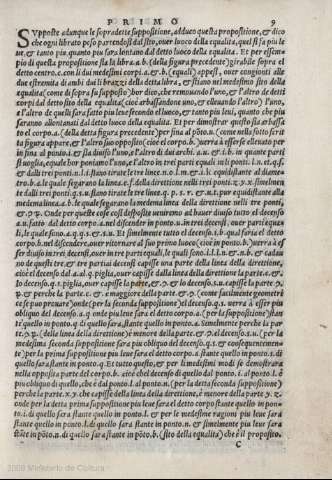 PRIMO 9
Supposte adunque le sopradette suppositione, adduco questa propositione, & dico
che ogni librato più partendosi dal sito, ouer luoco della equalità, quel si fa più le
ue, & tanto più quanto più sarà lontano dal detto luoco della equalità. Et per essem
pio di questa propositione sia la libra.a.b. (della figura precedente) girabile sopra el
detto centro.c. con li dui medesimi corpi.a. & .b. (equali) appesi, ouer congionti alle
due estremità di ambi dui li brazzi della detta libra, & stiano nel medesimo sito della
equalità (come di sopra fu supposto) hor dico, che remouendo l'uno, & l'altro de detti
corpi dal detto sito della equalità (cioè arbassandone uno, & eleuando l'altro) l'uno,
e l'altro de quelli sarà fatto piu leue secondo el luoco, & tanto piu leui, quanto che più
saranno allontanati dal detto luoco della equalità. Et per dimostrar questo sia arbassa
to el corpo.a. (della detta figura precedente) per fina al pōto.u. (come nella sotto scrit
ta figura appare, & l'altro suo opposito (cioè el corpo.b.) uerrà a esser si eleuato per
in fina al ponto.i. & sia diuiso l'uno, e l'altro di dui archi.a.u. & .i.b. in quante parti
si uoglia, equale hor poniamo l'uno, e l'altro in tre parti equali in ti ponti.l.n. et.q.s.
& dalli tre ponti.n.l.i. siano tirate le tre linee.n.o.l.m. & .i.k. equidistante al diame
tro.b.a. le quale segarano la linea.e.f. della direttione nelli tre ponti.z.y.x. similmen
te dalli tre ponti.q.s.u. siano tirate le tre linee.q.p.s.r. & .u.t. pur equidistante alla
medema linea.a.b. le quale segarano la medema linea della direttione nelli tre ponti,
, & .φ.℞. Onde per queste cose così disposite ueniremo ad hauer diuiso tutto el descenso
a.u. fatto dal detto corpo.a. nel descendere in ponto.u. in tre descensi, ouer parti equa
li, le quale sono.a.q.q.s. & .s.u. Et similmente tutto el descenso.i.b. qual faria el detto
corpo.b. nel discendere, ouer ritornare al suo primo luoco (cioè in ponto.b.) uerrà à es
ser diuiso in tre descensi, ouer in tre parti equali, le quali sono.i.l.l.n. & .n.b. & cadau
no de questi tre, & tre partial descensi capisse una parte della linea della direttione,
cioè el descenso dal.a.al.q. piglia, ouer capisse dalla linea della direttione la parte.c. & ,
lo descenso.q.s. piglia, ouer capisse la parte. & .φ. & lo descenso.s.u. capisse la parte.φ
℞. & perche la parte.c. & . è maggiore della parte. & .φ. (come facilmente geometri
ce si puo prouare) onde (per la seconda suppositione) el descenso.q.s. uerrà à esser piu
obliquo del descenso.a.q. onde piu leue sarà el detto corpo.a. (per la suppositione) stan
te quello in ponto.q. di quello saria stante quello in ponto.a. Semelmente perche la par
te.φ.℞. (della linea della direttione) è menore della parte. & .φ. el descenso.s.u. (per la
medesima seconda suppositione sarà piu obliquo del descenso.q.s. & consequentemen
te) per la prima suppositione piu leue sarà el detto corpo.a. stante quello in ponto.u. di
quello saria stante in ponto.q. Et tutto questo, & per li medesimi modi se demostrara
nella opposita parte del corpo.b. cioè che el descenso di quello dal ponto.i. al ponto.l. è
piu obliquo di quello, che è dal ponto.l. al ponto.n. (per la detta seconda suppositione)
perche la parte.x.y. che capisse della linea della direttione, è menore della parte.y.z.
onde per la detta prima suppositione piu leue sarà el detto corpo stante quello in pon
to.i. di quello saria stante quello in ponto.l. & per le medesime ragioni piu leue sarà
stante quello in ponto.l. di quello saria stante in ponto.n. & similmente piu leue sarà
stāte in pōto.n. di quello saria stante in pōto.b. (sito della equalità) che è il proposito.
C
2009 Ministerio de Cultura